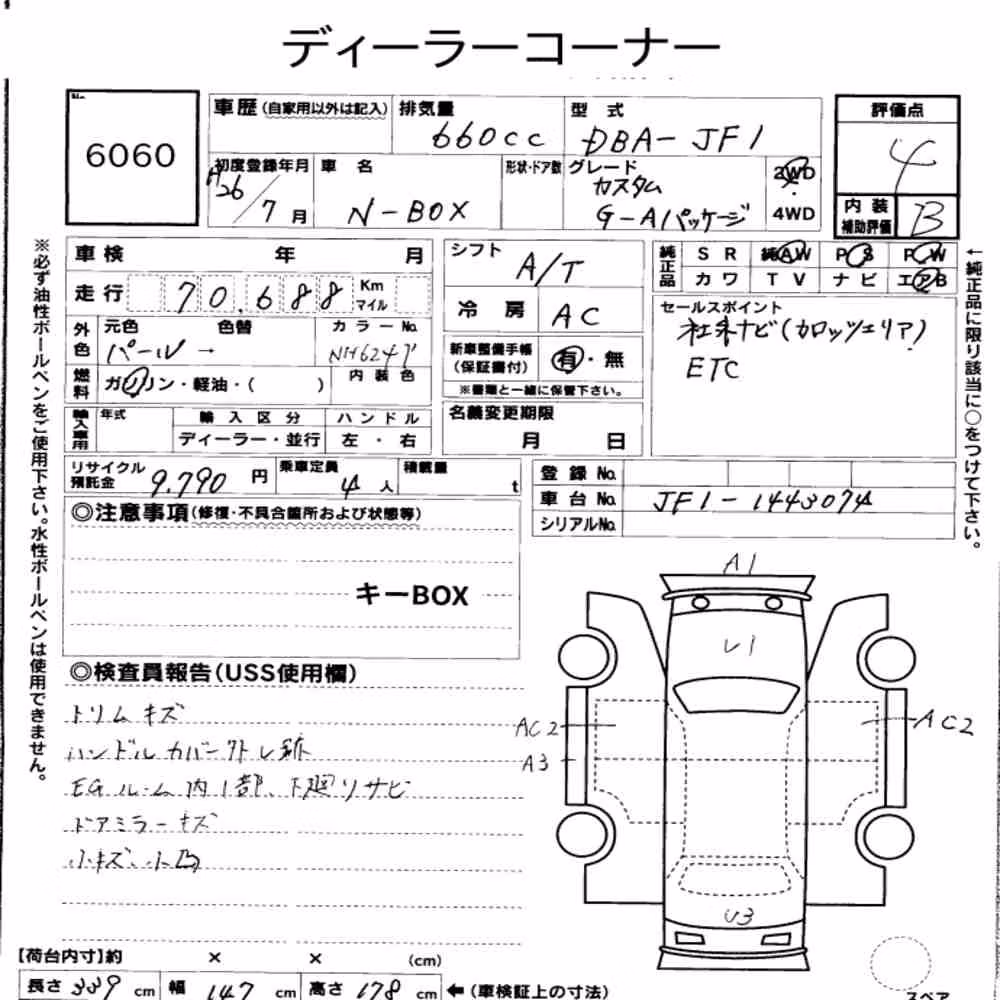 ディーラーコーナー
No.
6060
車歴(自家用以外は記入)
排気量
660cc
型式
DBA-JF1
評価点
4
初度登録年月
H26/7月
車名
N-BOX
形状・ドア数
グレード
カスタム
G-Aパッケージ
2WD
4WD
内装
補助評価
B
※必ず油性ボールペンをご使用下さい。水性ボールペンは使用できません。
車検 年 月
走行 70,688 Km マイル
外色
元色 色替 カラーNo.
パール → NH624P
燃料
ガソリン・軽油・( )
内装色
輸入車用
年式
輸入区分
ハンドル
ディーラー・並行
左・右
リサイクル預託金 9,790円
乗車定員 4人
積載量 t
シフト A/T
冷房 AC
新車整備手帳
(保証書付)
有・無
※書類と一緒に保管下さい。
名義変更期限
月 日
純正品
SR 純AW PS PW
カワ TV ナビ エアB
セールスポイント
社外ナビ(カロッツェリア)
ETC
←純正品に限り該当に○をつけて下さい。
登録No.
車台No. JF1-1443074
シリアルNo.
◎注意事項(修復・不具合箇所および状態等)
キーBOX
◎検査員報告(USS使用欄)
トリムキズ
ハンドルカバー外し跡
EGルーム内1部、下廻りサビ
ドアミラーキズ
小キズ、小凹
A1
U1
AC2
AC2
A3
U3
【荷台内寸】約 × × (cm)
長さ 339 cm 幅 147 cm 高さ 178 cm ←(車検証上の寸法)
スペア